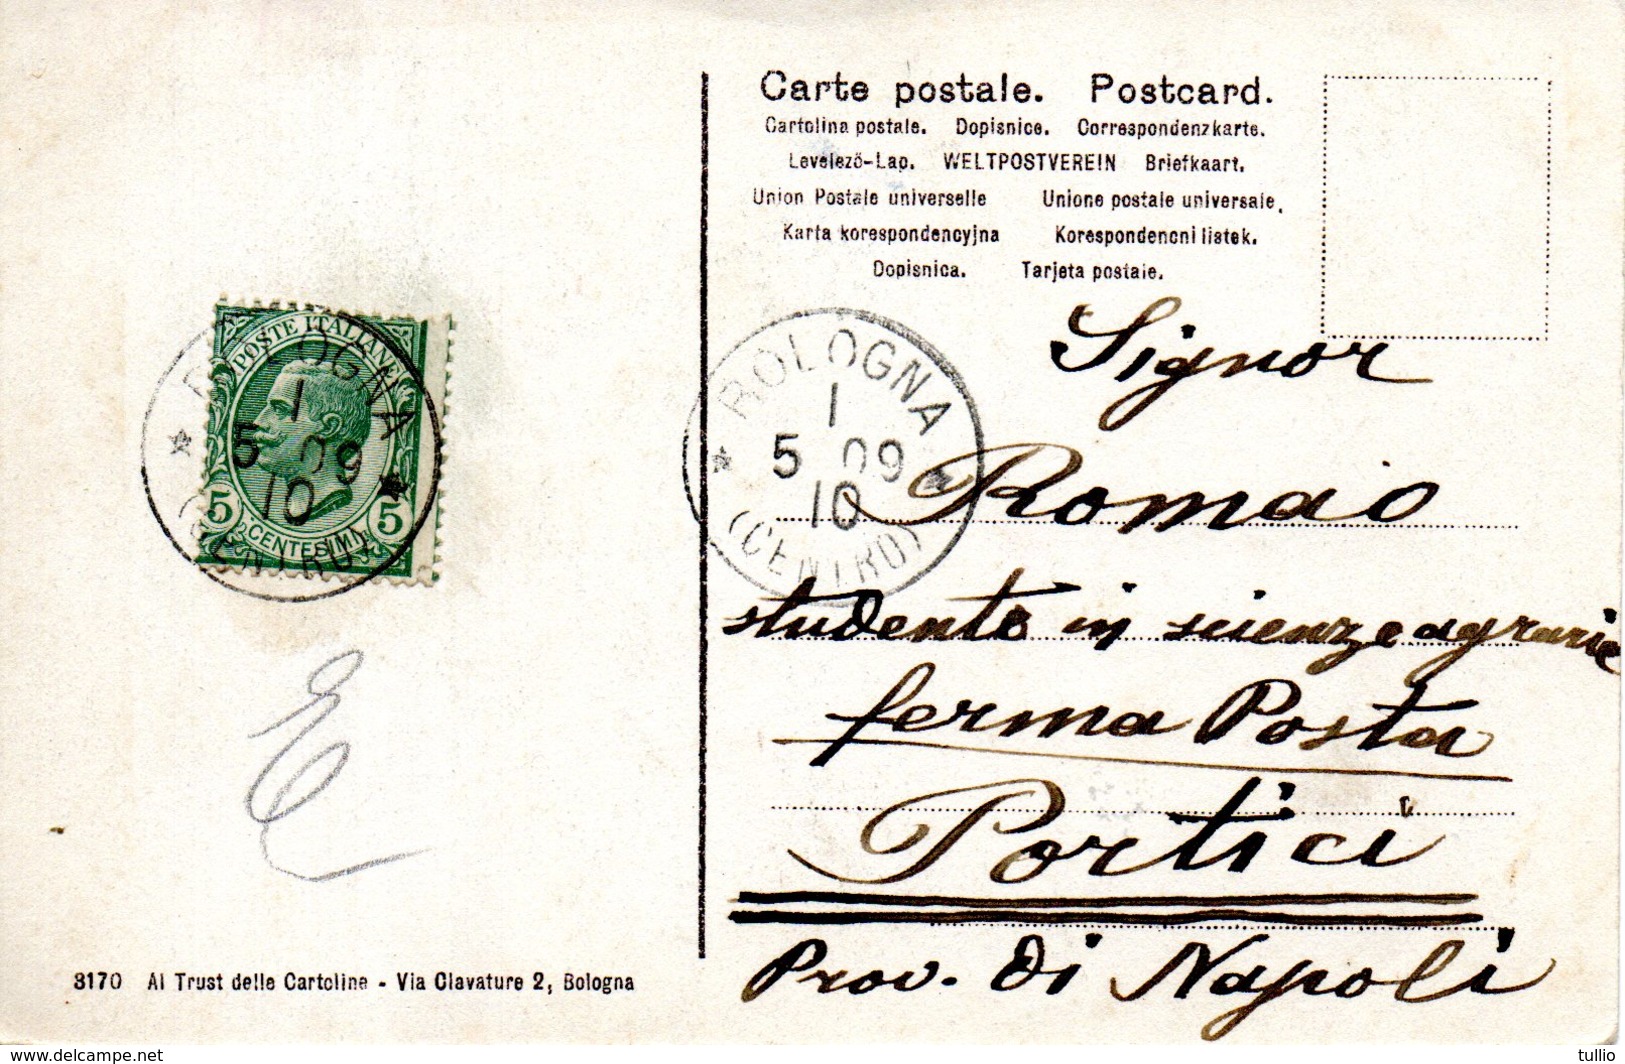 Carte postale. Postcard.
Cartolina postale. Dopisnice. Correspondenzkarte.
Levelező-Lap. WELTPOSTVEREIN Briefkaart.
Union Postale universelle Unione postale universale.
Karta korespondencyjna Korespondencni listek.
Dopisnica. Tarjeta postale.
POSTE ITALIANE
5 CENTESIMI 5
BOLOGNA
1
5 09
10
(CENTRO)
BOLOGNA
1
5 09
10
(CENTRO)
Signor
Romao
studente in scienze agrarie
ferma Posta
Portici
Prov. di Napoli
E
3170 Al Trust delle Cartoline - Via Clavature 2, Bologna
www.delcampe.net
tullio